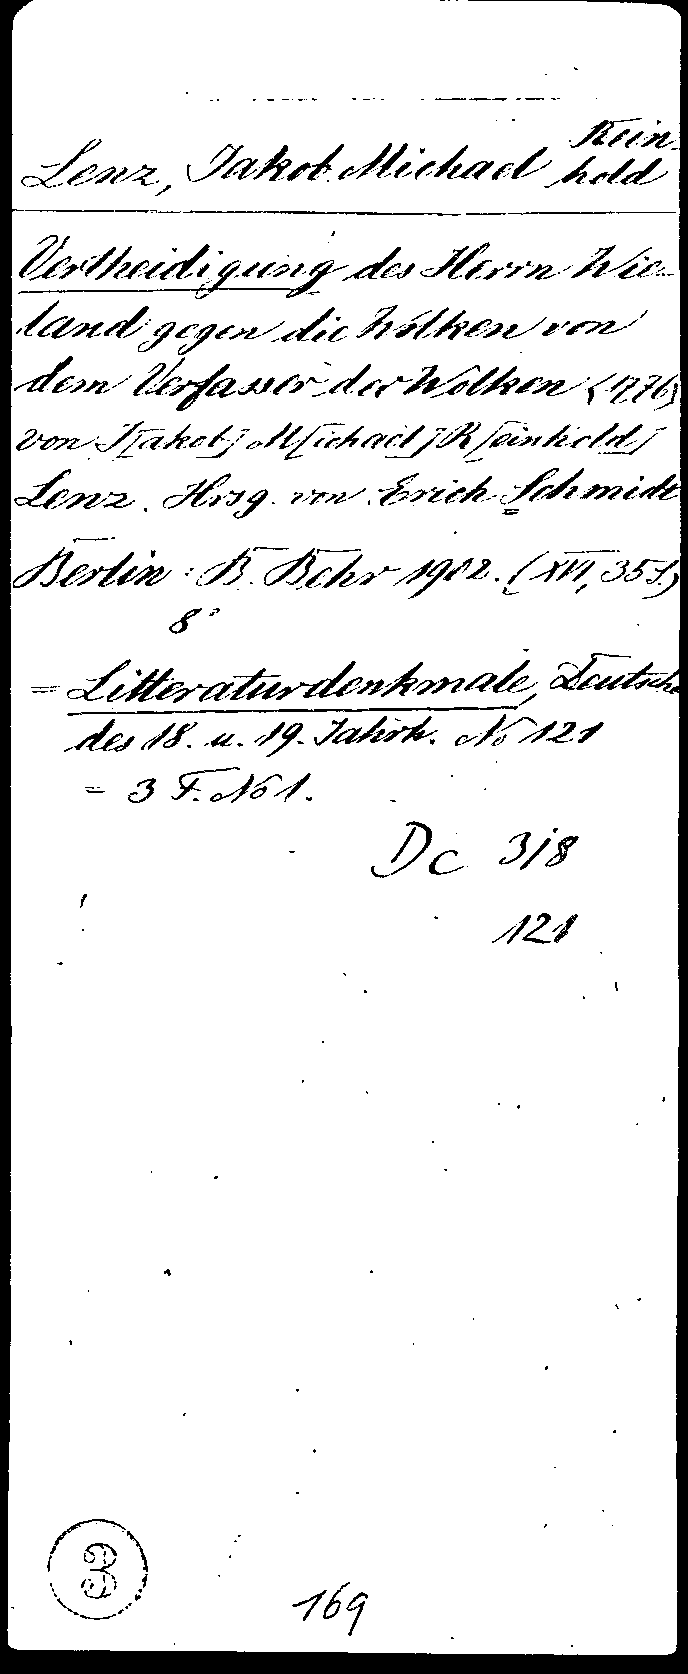 Lenz, Jakob Michael Rein-
hold
Vertheidigung des Herrn Wie-
land gegen die Wolken von
dem Verfasser der Wolken (1776)
von J[akob] M[ichael] R[einhold]
Lenz. Hrsg. von Erich Schmidt
Berlin: B. Behr 1902. (XVI, 35 S.)
8°
= Litteraturdenkmale, Deutsche
des 18. u. 19. Jahrh. No 121
= 3 F. No 1.
Dc 318
121
3
169